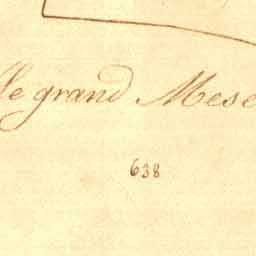 le grand Mese
638